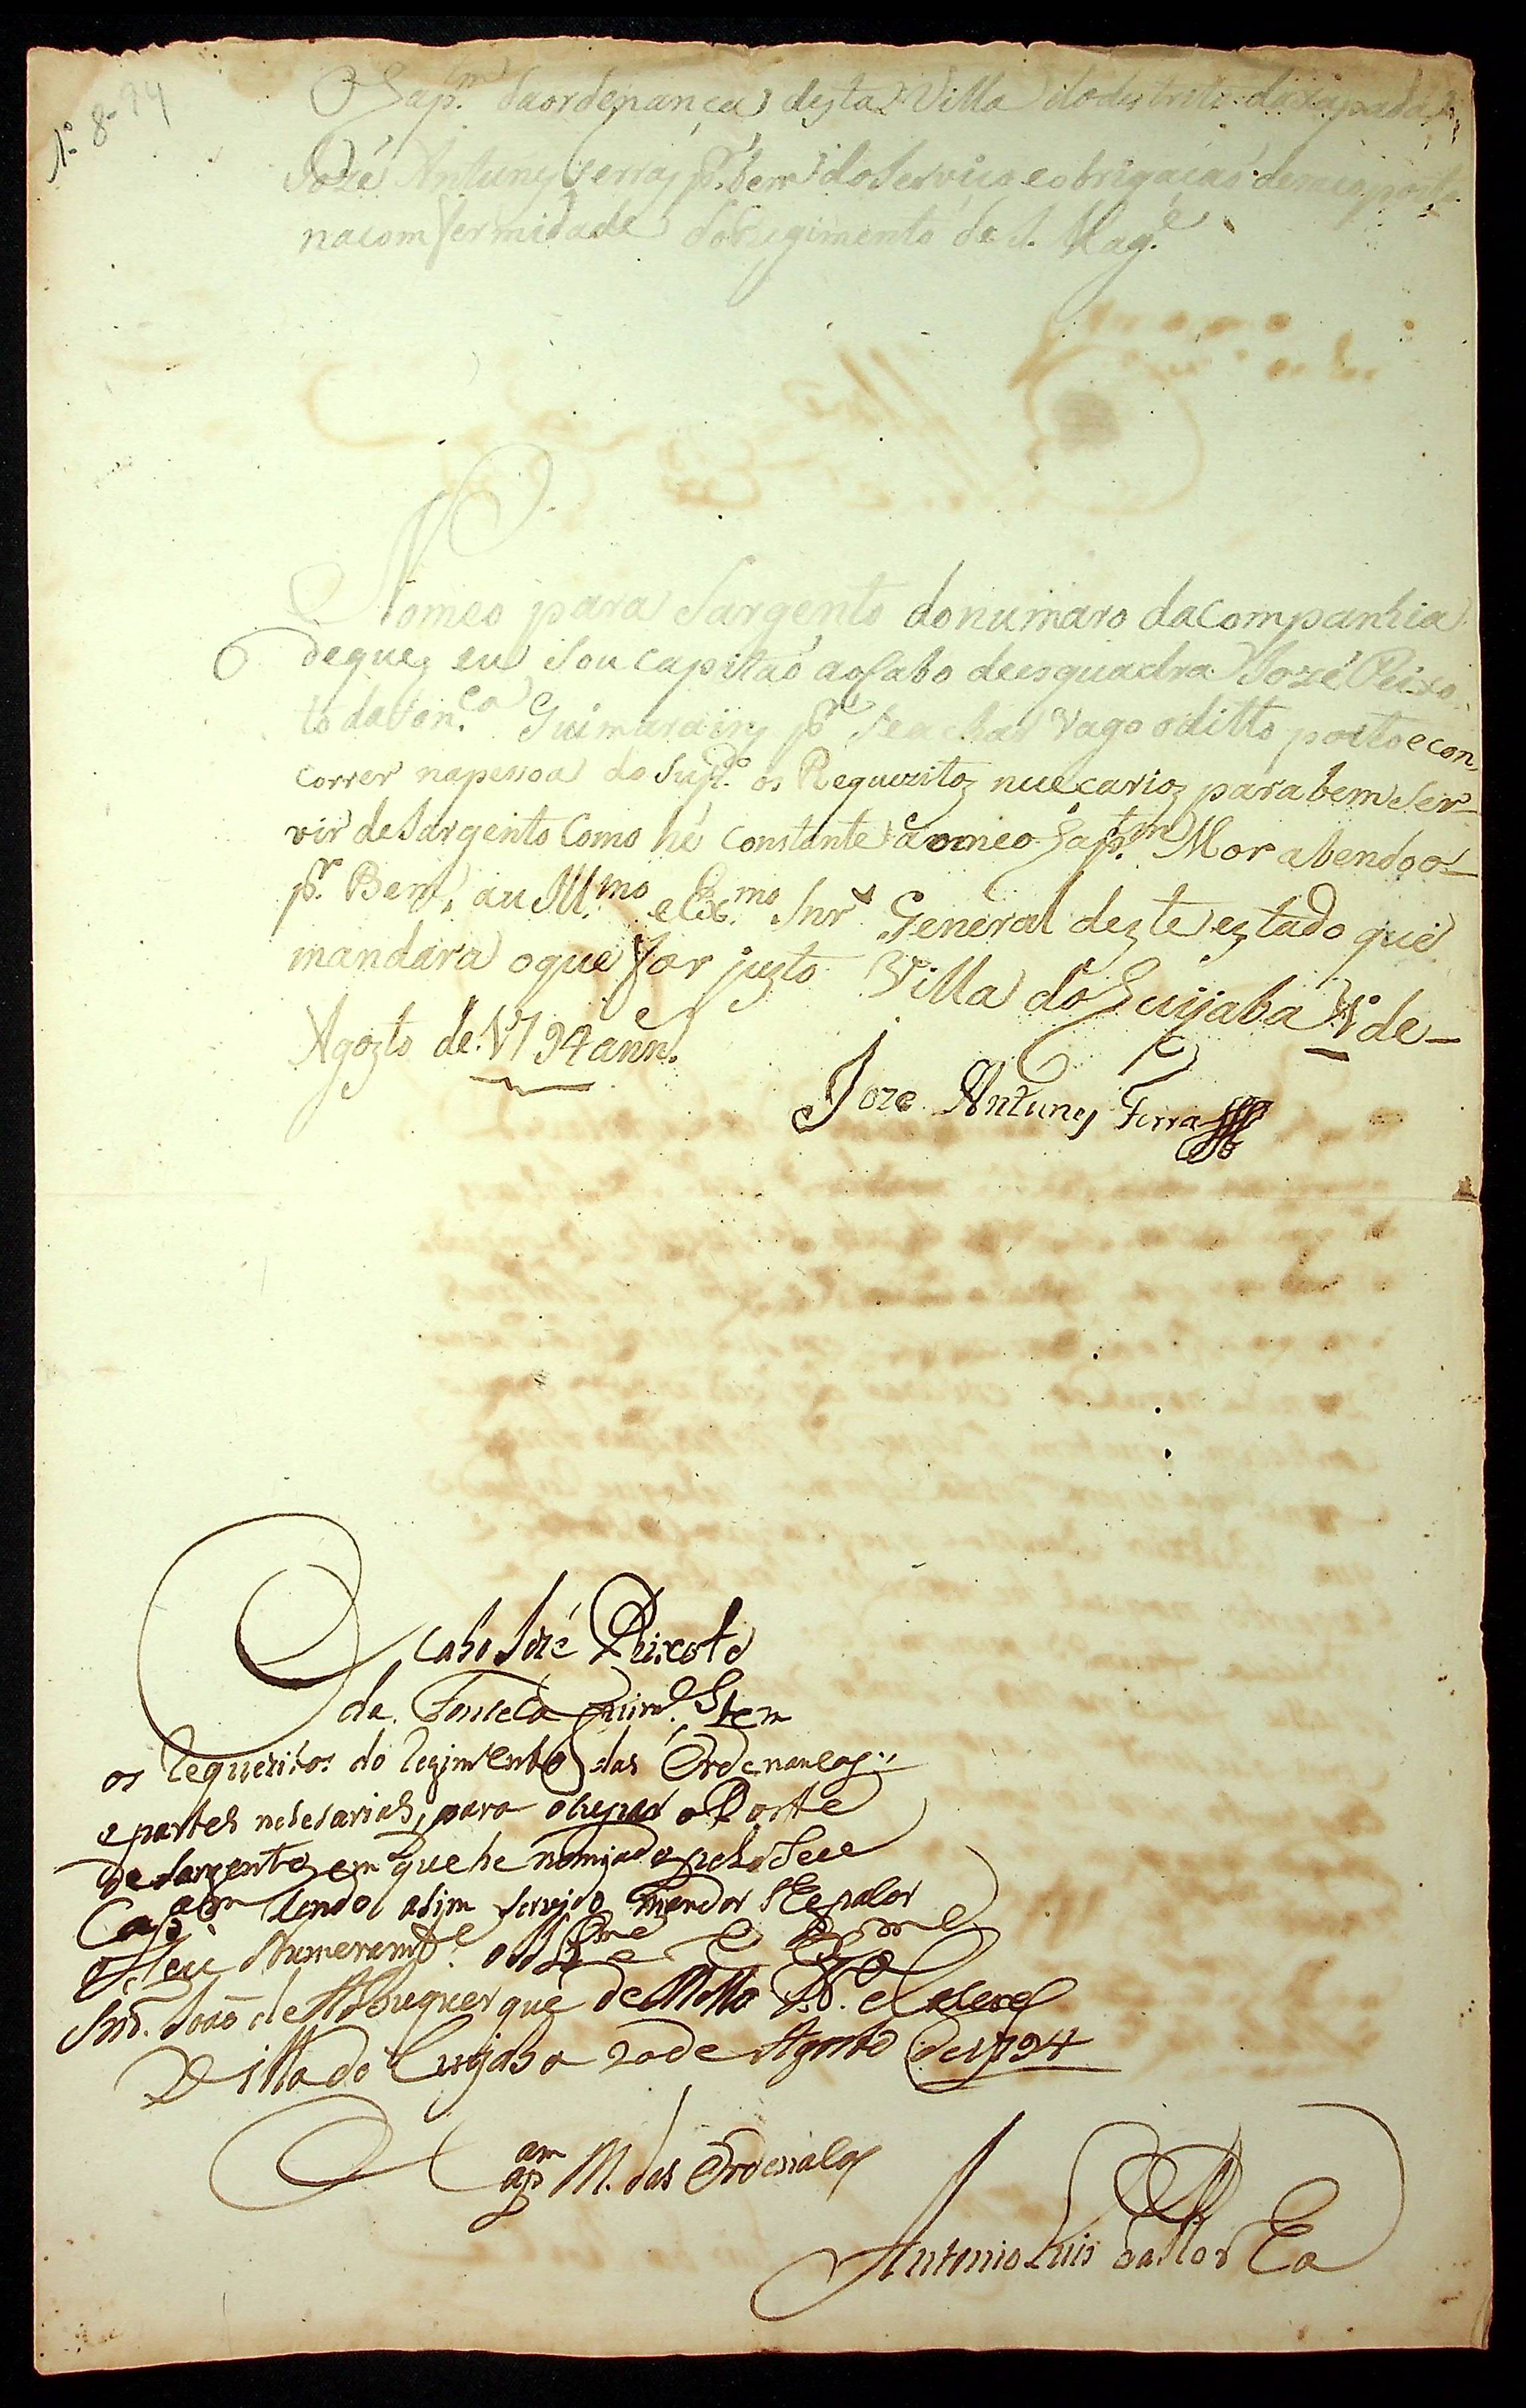 Nº 8-94
O Cap.m daordenança desta Villa dodestrito daxapada
Jozé Antunes Ferras p.r bem do Serviço eobrigaçaó demeo posto
nacomfermidade doRegimento de S. Mag.e
Nomeo para Sargento donumaro daCompanhia
deque eu Sou capitaó aoCabo deesquadra Jozé Peixo
todafon.ca Guimarains p.r Seachar Vago oditto posto econ,
correr napessoa do Sup.do os Requezitos nececarios parabem Ser-
vir deSargento Como hé Constante aomeo Cap.tm Mor abendoo-
p.r Bem, au Ill.mo eEx.mo Snr General dezte eztado que
mandara oque for juzto Villa do Cuyaba de-
Agozto de 1794 ann.
Joze Antunes Ferras
O Cabo José Peixoto
da Fonseca Guim.es tem
os Requezitos do Regimento das Ordenancas
epartes nesesarias, para ocupar o Posto
de Sargento em que he nomjado pelo Seu
Cap.am Sendo asim Servido mandar
o Seu o Ill.mo e Ex.mo
Snr. Joaõ de Albuquerque de Mello P.ra e Caceres
Villa do Cuyaba 20 de Agosto de 1794
Cap.am M. das Ordenansas
Antonio Luis da Rocha